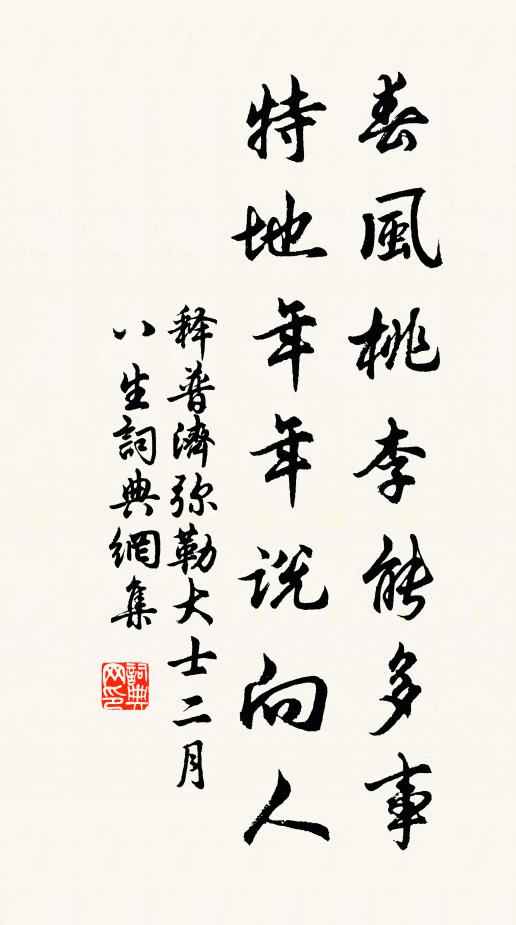 春風桃李能多事
特地年年説向人
释普濟弥勒大士二月
八生詞典網集
詞典
网印